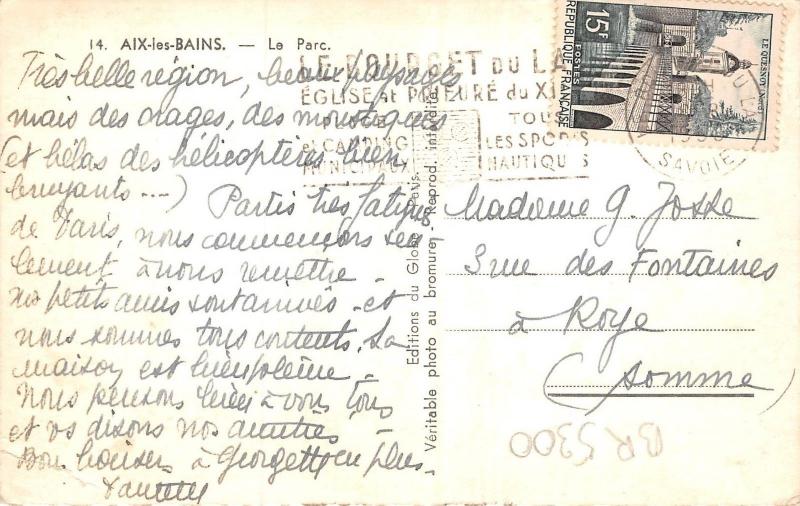 14. AIX-les-BAINS. — Le Parc.
LE BOURGET DU LAC
ÉGLISE et PRIEURÉ du XI
PLAGE
et CAMPING
MUNICIPAUX
TOUS
LES SPORTS
NAUTIQUES
SAVOIE
15F
POSTES
RÉPUBLIQUE FRANÇAISE
LE QUESNOY (Nord)
Très belle région, beaux paysages
mais des orages, des moustiques
(et hélas des hélicoptères bien
bruyants ---) Partis très fatigués
de Paris, nous commençons seu
lement à nous remettre -
Nos petits amis sont arrivés et
nous sommes tous contents. La
maison est bien pleine -
Nous pensons bien à vous tous
et vs disons nos amitiés
Bon baiser à Georgette en plus
Editions du Globe, Paris.
Véritable photo au bromure - Reprod. interdite
Madame G. Josse
3 rue des Fontaines
à Roye
(Somme)
BR 5300